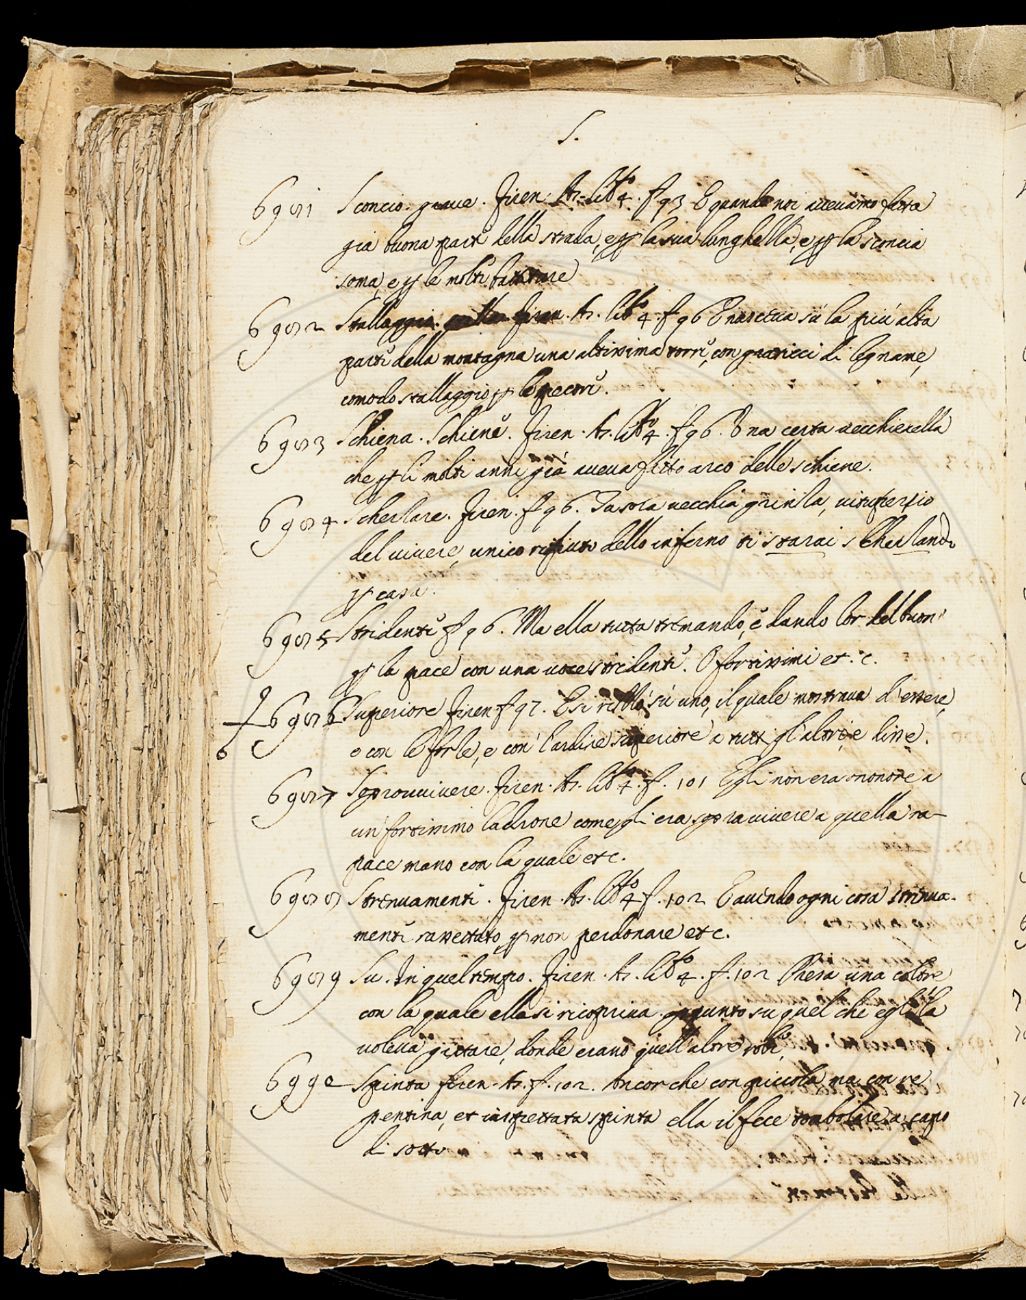 S.
6981 Sconcio. grave. Firen. As. lib.º 4. f. 93 E quando noi avevamo fatta
già buona parte della strada, e p la sua lunghezza e p la sconcia
soma, e p le molte battiture
6982 Stallaggio. Firen. As. lib.º 4. f. 96 E nasceva sù la più alta
parte della montagna una altissima torre, con graticci di legname,
comodo stallaggio p le pecore.
6983 Schiena. Schiene. Firen. As. lib.º 4. f. 96. Una certa vecchierella
che p li molti anni già aveva fatto arco delle schiene.
6984 Scherlare. Firen. f. 96. vecchia grinza, vituperio
del vivere, unico rifiuto dello inferno ti starai
p casa.
6985 Stridente f. 96. Ma ella tutta tremando, e dando lor del buon
p la pace con una voce stridente. O fortissimi et. c.
6986 Superiore Firen f. 97. E si rizzò sù uno, il quale mostrava d'essere,
e con le forze, e con l'ardire superiore a tutti gl'altri, e disse.
6987 Sopravvivere. Firen. As. lib.º 4. f. 101 Egli non era onore a
un fortissimo ladrone come gli era sopravivere a quella ra-
pace mano con la quale etc.
6988 Strenuamente. Firen. As. lib.º 4. f. 102 E avendo ogni cosa strenua-
mente rassettato, p non perdonare etc.
6989 Su. In quel tempo. Firen. As. lib.º 4. f. 102 Presa una coltre
con la quale ella si ricopriva appunto su quel che egli la
voleva gittare, donde erano quell'altre robe,
6990 Spinta Firen. As. f. 102. Ancor che con piccola, ma con re
pentina, et inaspettata spinta ella il fece tombolare a capo
di sotto